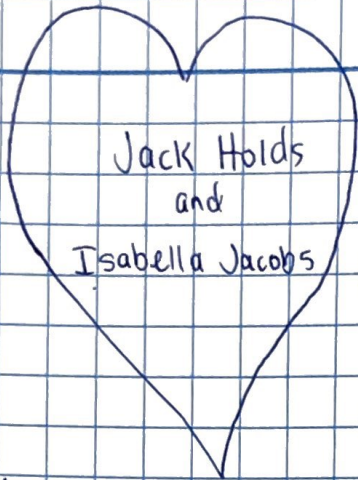 Jack Holds
and
Isabella Jacobs